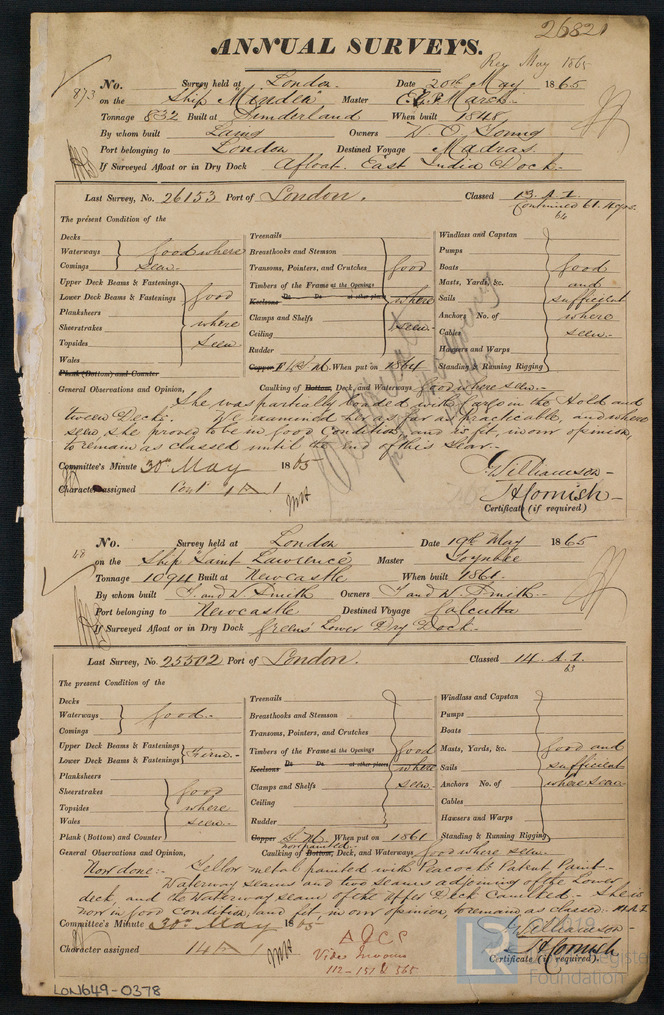 26821
ANNUAL SURVEYS.
Rey May 1865
873
No. Survey held at London Date 20th May 1865
on the Ship Mindia Master Marsh
Tonnage 832 Built at Sunderland When built 1848
By whom built Laing Owners W O Young
Port belonging to London Destined Voyage Madras
If Surveyed Afloat or in Dry Dock Afloat East India Dock
Last Survey, No. 26153 Port of London. Classed 13. A. 1.
Continued 61.
The present Condition of the
Decks
Waterways
Comings
good where
seen
Upper Deck Beams & Fastenings
Lower Deck Beams & Fastenings
Planksheers
Sheerstrakes
Topsides
Wales
good
where
seen
Plank (Bottom) and Counter
Treenails
Breasthooks and Stemson
Transoms, Pointers, and Crutches
Timbers of the Frame at the Openings
Keelsons Do Do at other places
Clamps and Shelfs
Ceiling
Rudder
good
where
seen
Copper Y M When put on 1864
Windlass and Capstan
Pumps
Boats
Masts, Yards, &c.
Sails
Anchors No. of
Cables
Hawsers and Warps
Standing & Running Rigging
good
and
sufficient
where
seen
General Observations and Opinion, Caulking of Bottom, Deck, and Waterways good where seen
She was partially loaded, with Cargo in the Hold and
tween Decks. We examined her as far as practicable, and where
seen she proved to be in good Condition, and is fit, in our opinion,
to remain as classed until the end of this Year.
Committee's Minute 30th May 1865
Character assigned Cont A 1
G Williamson
J H Cornish
Certificate (if required)
48
No. Survey held at London Date 19th May 1865
on the Ship "Saint Lawrence" Master Toynbee
Tonnage 1094 Built at Newcastle When built 1861
By whom built T. and W Smith Owners T and W Smith
Port belonging to Newcastle Destined Voyage Calcutta
If Surveyed Afloat or in Dry Dock Green's Lower Dry Dock
Last Survey, No. 25502 Port of London. Classed 14. A. 1.
63
The present Condition of the
Decks
Waterways
Comings
good
Upper Deck Beams & Fastenings
Lower Deck Beams & Fastenings
Firm
Planksheers
Sheerstrakes
Topsides
Wales
Plank (Bottom) and Counter
good
where
seen
Treenails
Breasthooks and Stemson
Transoms, Pointers, and Crutches
Timbers of the Frame at the Openings
Keelsons Do. Do. at other places
Clamps and Shelfs
Ceiling
Rudder
good
where
seen
Copper Y M When put on 1861
now painted
Windlass and Capstan
Pumps
Boats
Masts, Yards, &c.
Sails
Anchors No. of
Cables
Hawsers and Warps
Standing & Running Rigging
good and
sufficient
where seen
General Observations and Opinion, Caulking of Bottom, Deck, and Waterways good where seen
Now done:- Yellow metal painted with Peacock's Patent Paint -
Waterway seams and two seams adjoining of the Lower
deck, and the Waterway seams of the Upper Deck Caulked - She is
now in good condition, and fit, in our opinion, to remain as classed.
Committee's Minute 30th May 1865
Character assigned 14 A 1
G Williamson
J H Cornish
Certificate (if required).
112-151 & 365
LON649-0378
LR
© 2019
Lloyd's Register
Foundation